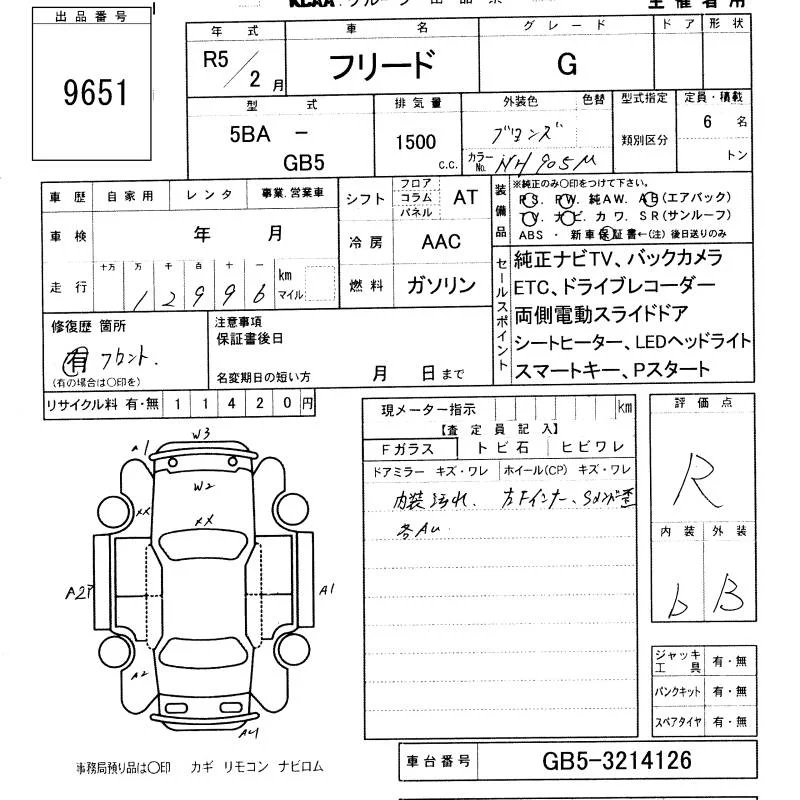 出品番号
9651
年式
R5/2月
車名
フリード
グレード
G
ドア 形状
型式
5BA －
GB5
排気量
1500
c.c.
外装色 色替
ブロンズ
カラーNo. NH905M
型式指定
類別区分
定員・積載
6 名
トン
車歴 自家用 レンタ 事業.営業車
車検 年 月
走行 十万 万 千 百 十 一
12996
km
マイル
シフト フロア コラム パネル AT
冷房 AAC
燃料 ガソリン
装備品
※純正のみ〇印をつけて下さい。
P.S. P.W. 純AW. A.B(エアバック)
T.V. ナビ. カワ. S.R(サンルーフ)
ABS ・ 新車保証書←(注) 後日送りのみ
セールスポイント
純正ナビTV、バックカメラ
ETC、ドライブレコーダー
両側電動スライドドア
シートヒーター、LEDヘッドライト
スマートキー、Pスタート
修復歴 箇所
有 フロント.
(有の場合は〇印を)
注意事項
保証書後日
名変期日の短い方 月 日まで
リサイクル料 有・無 11420円
現メーター指示 km
【査定員記入】
Fガラス トビ石 ヒビワレ
ドアミラー キズ・ワレ ホイール(CP) キズ・ワレ
内装汚れ. 左Fインナー、Sメンバ歪
各AU
評価点
R
内装 外装
b B
W3
A1
W2
XX
XX
A2P
A1
A2
A4
ジャッキ工具 有・無
パンクキット 有・無
スペアタイヤ 有・無
事務局預り品は〇印 カギ リモコン ナビロム
車台番号 GB5-3214126